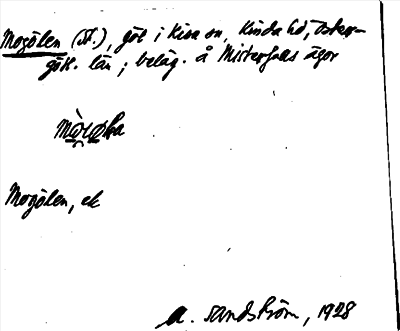 Mogölen (st.), göl i Kisa sn, Kinda hd, Öster-
göt. län; beläg. å Misterfalls ägor
Mogölen, ek
A. Sandström, 1928